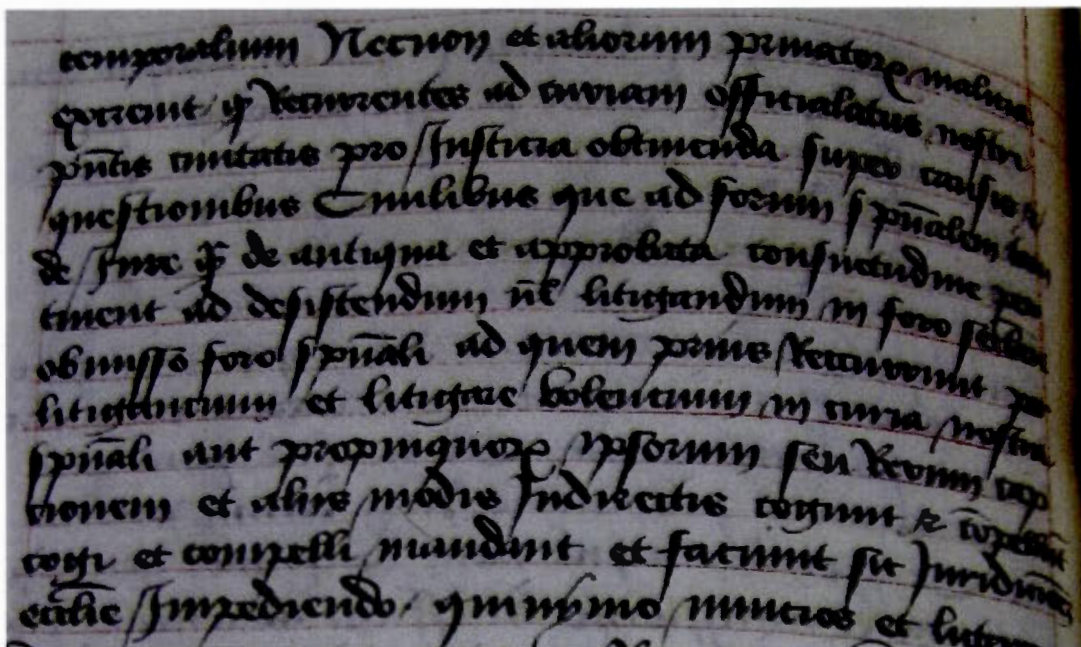 temporalium Necnon et aliorum priuatorꝝ malicia
excreuit ꝙ Recurrentes ad curiam officialatus nostri
pñtis ciuitatis pro Justicia obtinenda super causis ⁊
questionibus Ciuilibus que ad forum spũalem tam
de Jure ꝙ̃ de antiqua et approbata consuetudine per
tinent ad desistendum ul̃ litigandum in foro
obmisso foro spũali ad quem prius Recurrerunt
litigancium et litigare volencium in curia nostra
spũali aut propinquorꝝ ipsorum seu Rerum cap
cionem et aliis modis Indirectis cogunt ⁊ cõpellũt
cogi et compelli mandant et faciunt sic
ecctie Impediendo quinymo nuncios et